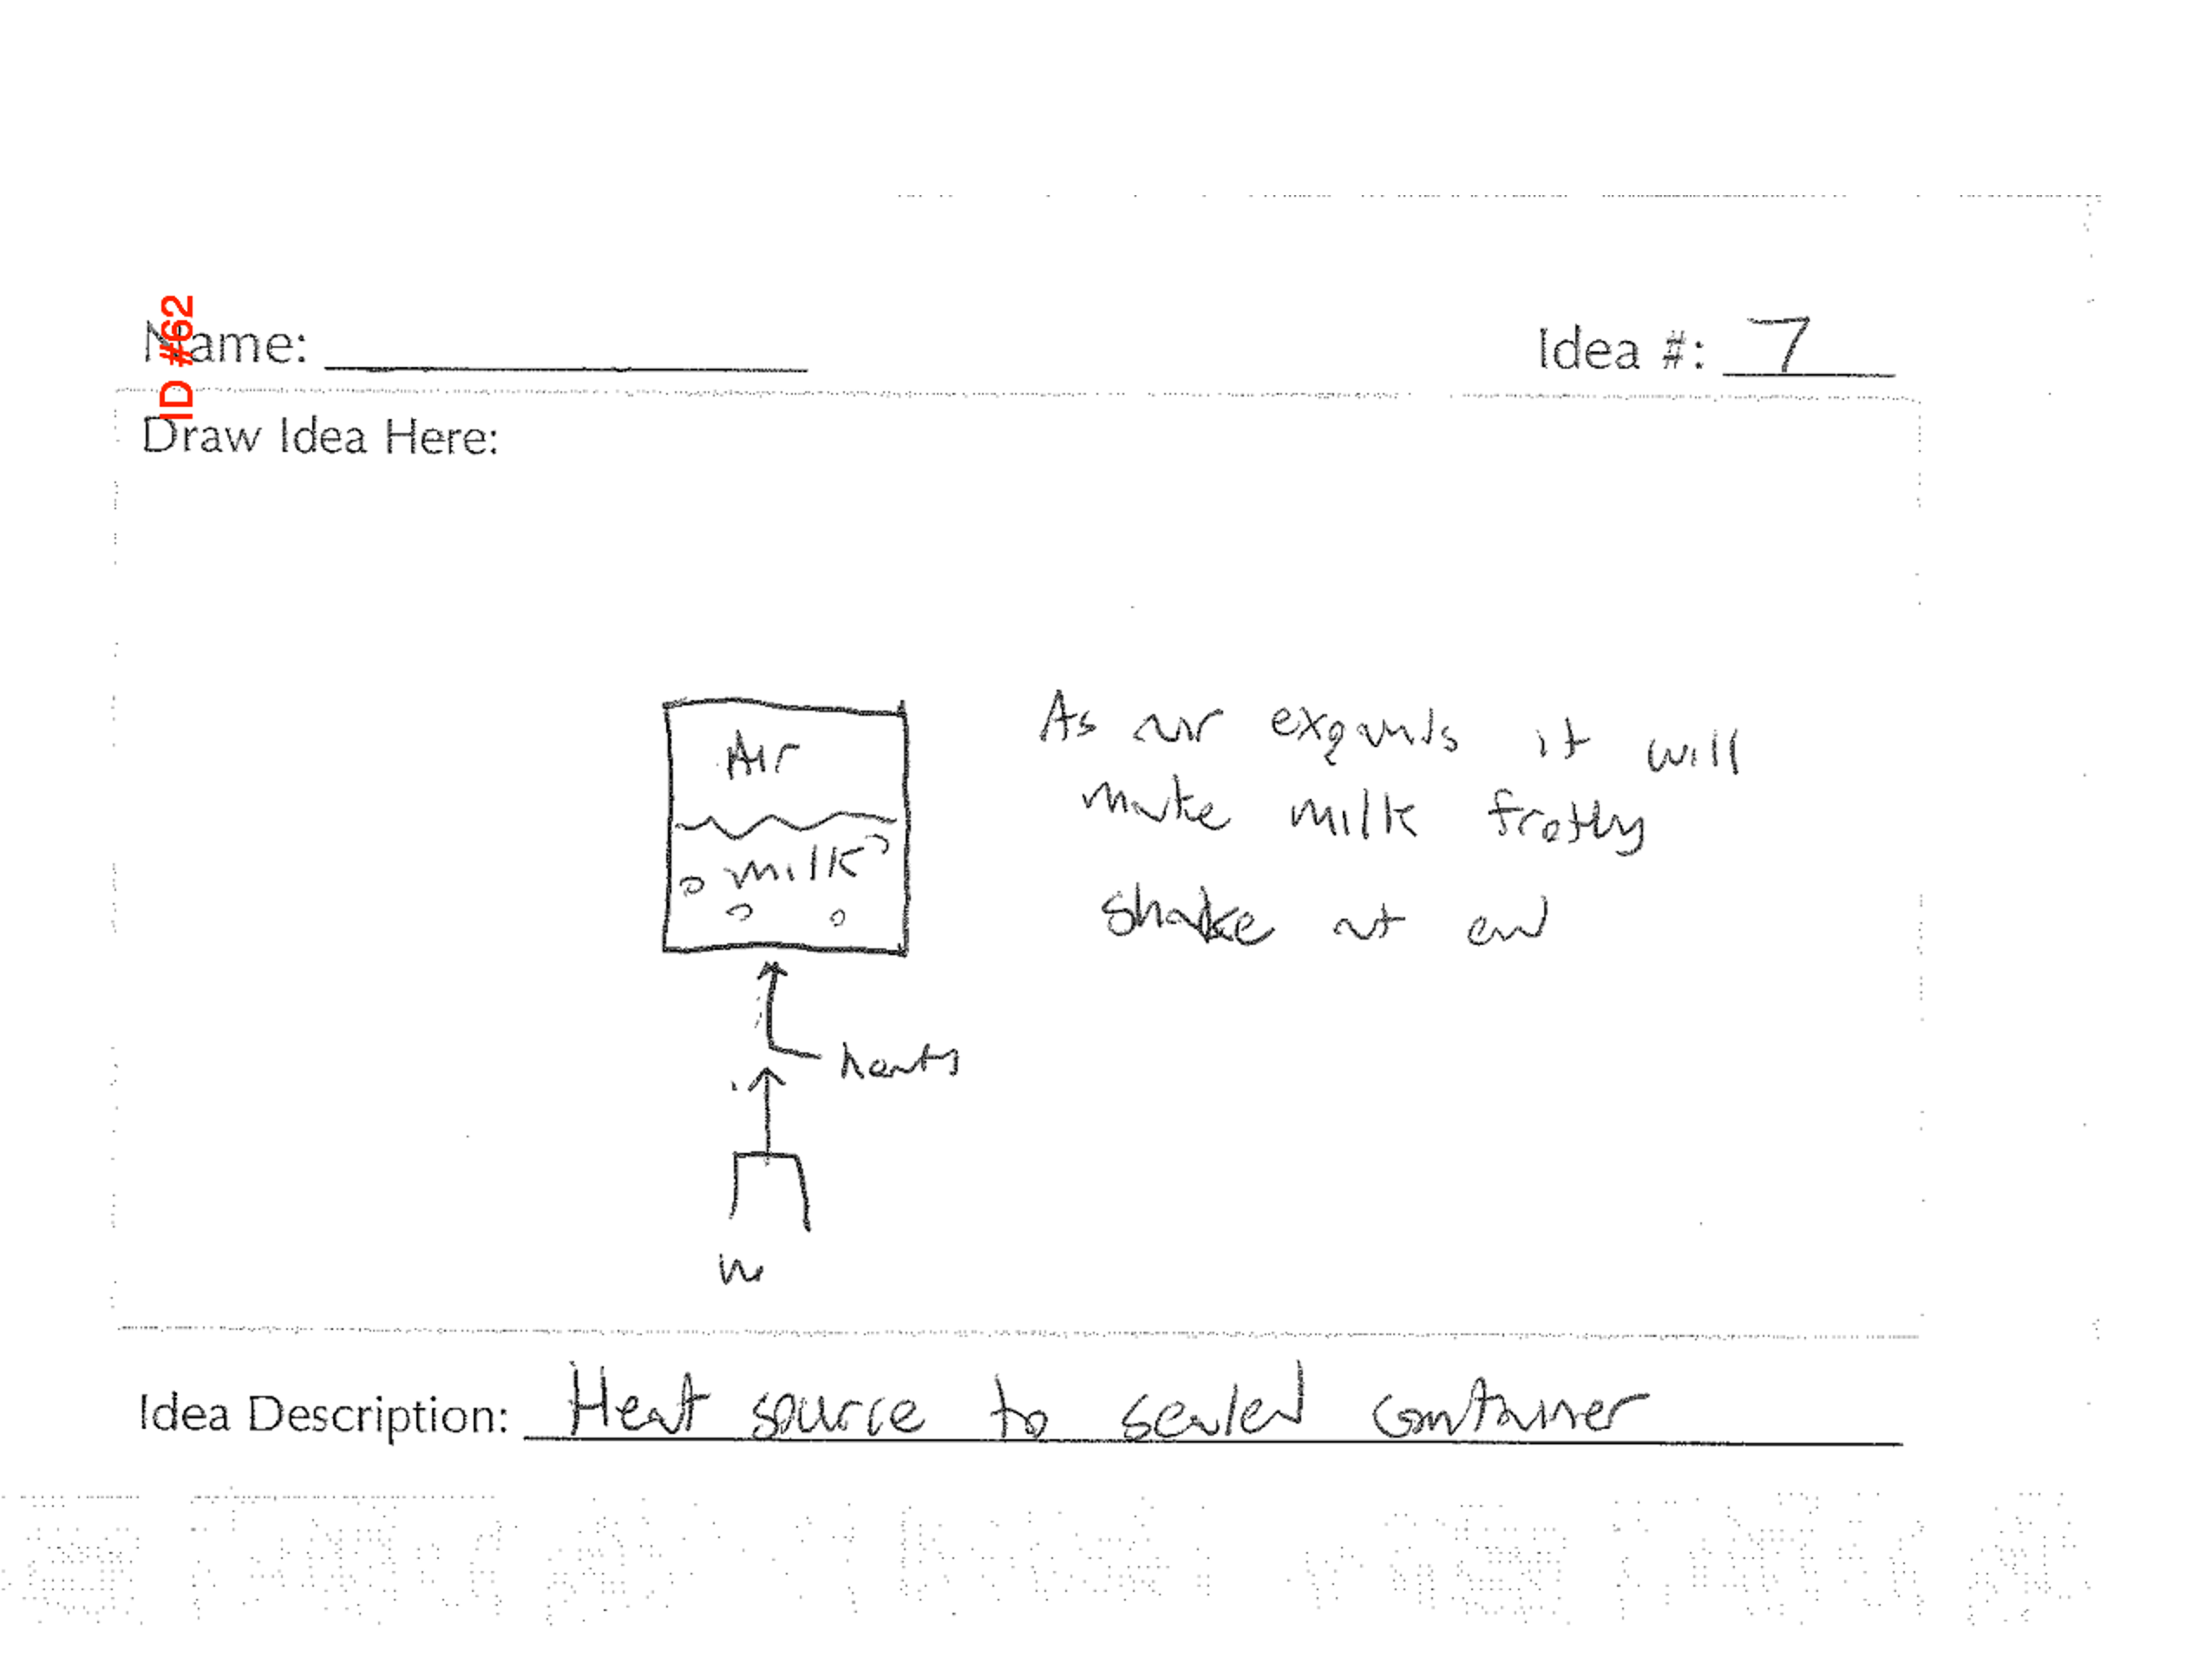 ID #62
Name:
Idea #: 7
Draw Idea Here:
Air
milk
As air expands it will
make milk frothy
shake at end
heats
Idea Description: Heat source to sealed container